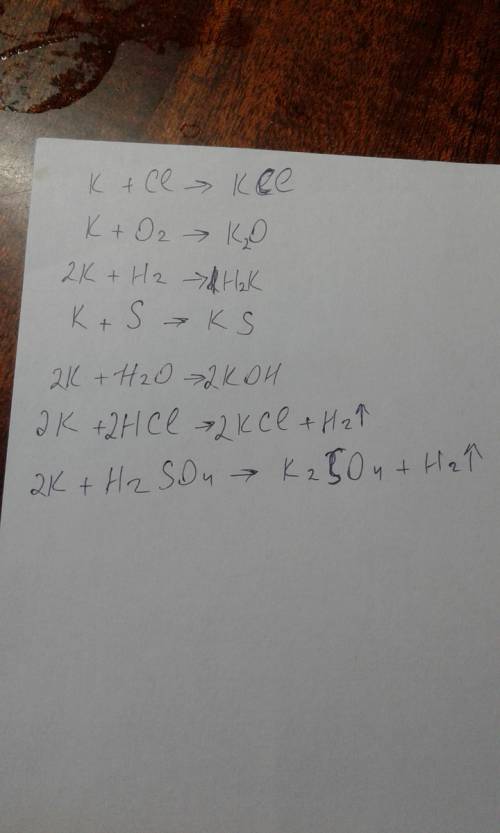 K + Cl → KCl
K + O2 → K2O
2K + H2 → H2K
K + S → KS
2K + H2O → 2KOH
2K + 2HCl → 2KCl + H2↑
2K + H2SO4 → K2SO4 + H2↑